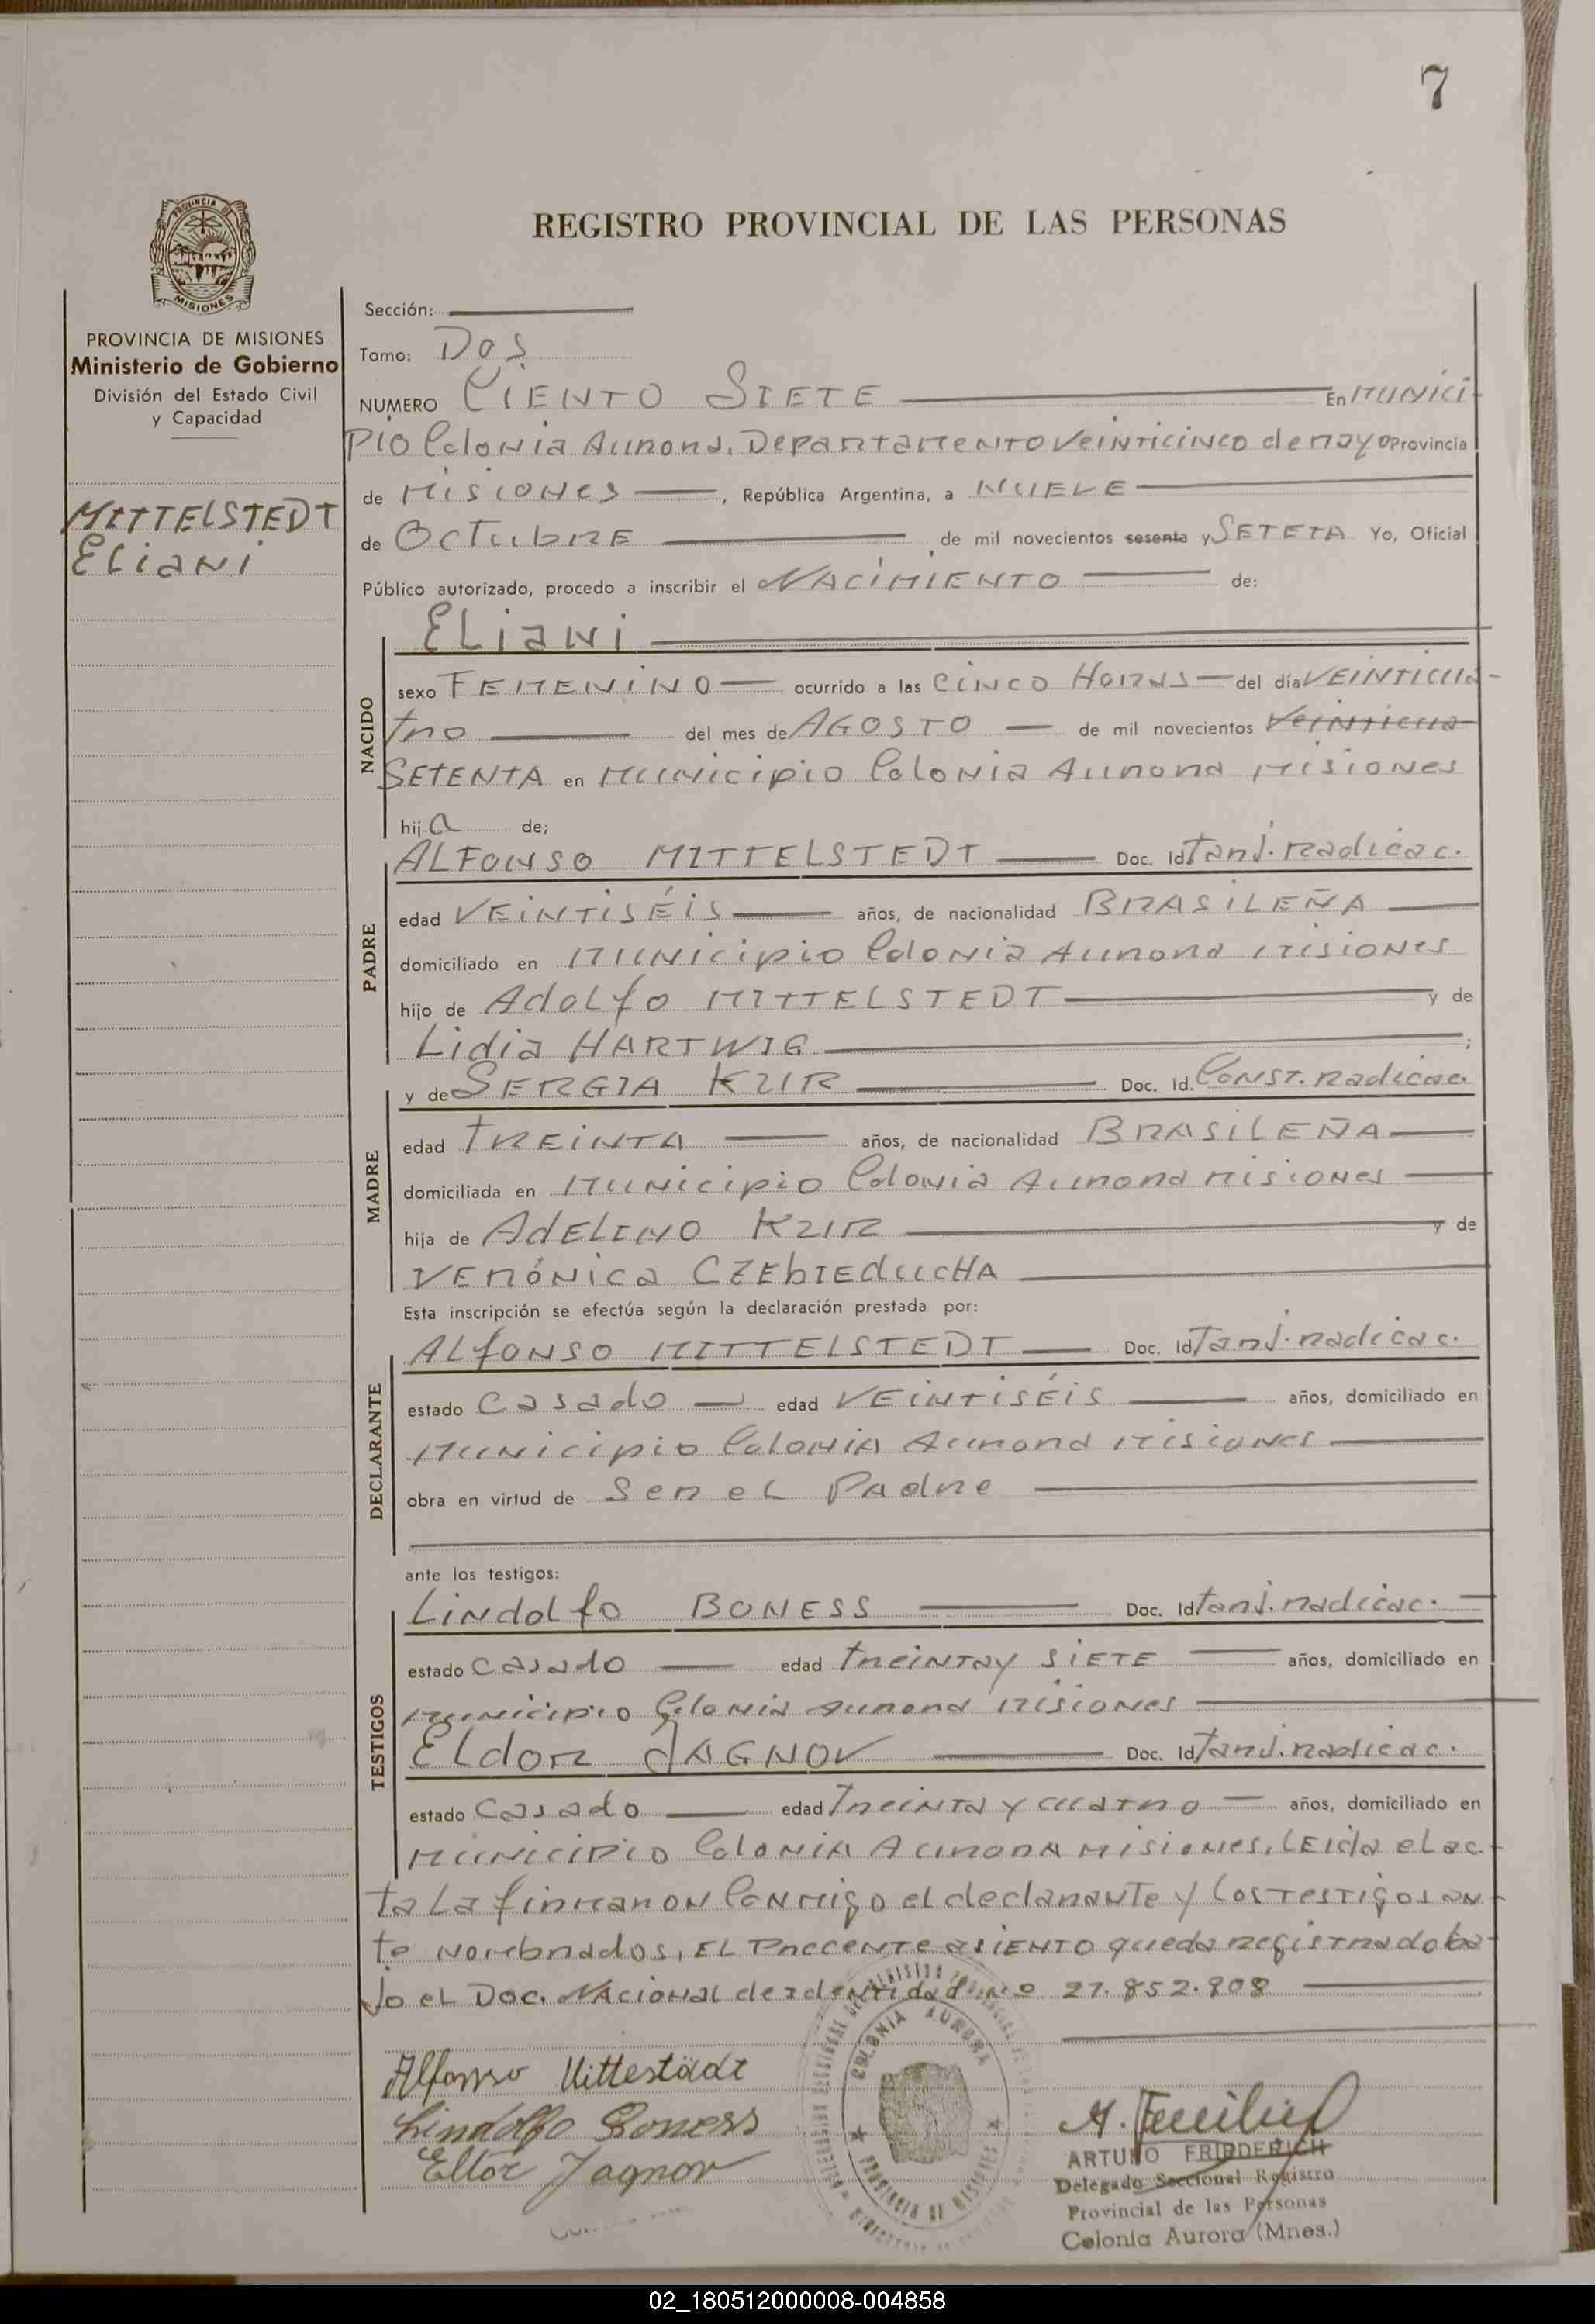 7
REGISTRO PROVINCIAL DE LAS PERSONAS
PROVINCIA DE MISIONES
Ministerio de Gobierno
División del Estado Civil
y Capacidad
MITTELSTEDT
Eliani
Sección:
Tomo: Dos
NUMERO CIENTO SIETE En MUNICI
PIO Colonia Aurora, Departamento Veinticinco de mayo Provincia
de Misiones, República Argentina, a NUEVE
de Octubre de mil novecientos sesenta y SETETA Yo, Oficial
Público autorizado, procedo a inscribir el NACIMIENTO de:
Eliani
NACIDO
sexo FEMENINO ocurrido a las CINCO Horas del día VEINTICUA-
tro del mes de AGOSTO de mil novecientos Veinticua
SETENTA en Municipio Colonia Aurora Misiones
hija de;
PADRE
ALFONSO MITTELSTEDT Doc. Id Tarj. radicac.
edad VEINTISÉIS años, de nacionalidad BRASILEÑA
domiciliado en Municipio Colonia Aurora Misiones
hijo de Adolfo MITTELSTEDT y de
Lidia HARTWIG ;
MADRE
y de SERGIA KZIR Doc. Id. Const. radicac.
edad TREINTA años, de nacionalidad BRASILEÑA
domiciliada en Municipio Colonia Aurora Misiones
hija de ADELINO KZIR y de
VERÓNICA CZEbIEduCHA
Esta inscripción se efectúa según la declaración prestada por:
DECLARANTE
ALfONSO MITTELSTEDT Doc. Id Tarj. radicac.
estado Casado edad VEINTISÉIS años, domiciliado en
Municipio Colonia Aurora Misiones
obra en virtud de Ser el Padre
ante los testigos:
TESTIGOS
Lindolfo BONESS Doc. Id tarj. radicac.
estado casado edad treinta y SIETE años, domiciliado en
Municipio Colonia Aurora Misiones
Eldor JAGNOV Doc. Id tarj. radicac.
estado Casado edad Treinta y cuatro años, domiciliado en
Municipio Colonia Aurora Misiones, LEIda el ac-
ta La firmaron Conmigo el declarante y los Testigos an-
te Nombrados, EL Precente asiento queda registrado ba-
Jo el Doc. Nacional de Identidad Nº 21.852.808
Alfonso Mittestädt
Lindolfo Boness
Eltor Jagnow
COLONIA AURORA
PROVINCIA DE MISIONES
ARTURO FRIEDERICH
Delegado Seccional Registro
Provincial de las Personas
Colonia Aurora (Mnes.)
02_180512000008-004858